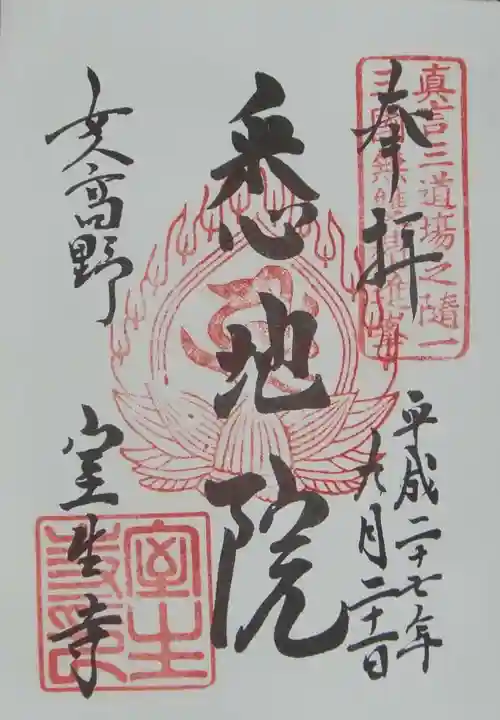 真言三道場之随一
奉拝
平成二十七年
九月二十一日
悉地院
女人高野
室生寺
室生